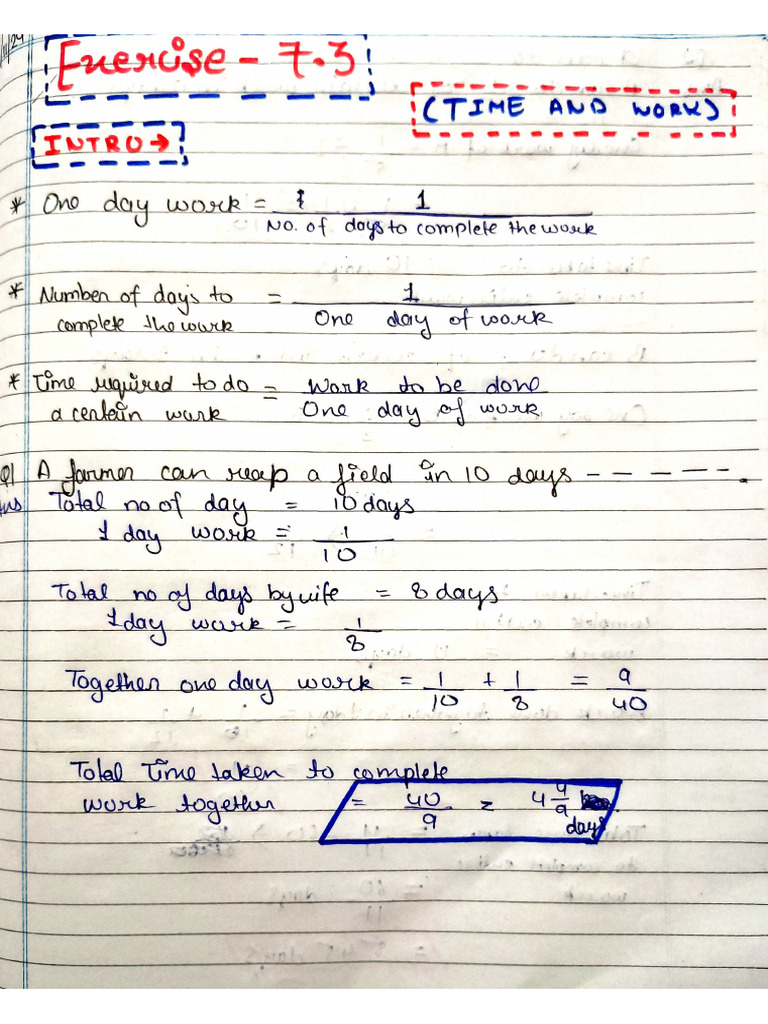 11/24
Exercise - 7.3
(TIME AND WORK)
INTRO →
* One day work = 1
No. of days to complete the work
* Number of days to = 1
complete the work One day of work
* Time required to do = Work to be done
a certain work One day of work
Q1 A farmer can reap a field in 10 days - - - - - .
Ans Total no of day = 10 days
1 day work = 1/10
Total no of days by wife = 8 days
1 day work = 1/8
Together one day work = 1/10 + 1/8 = 9/40
Total Time taken to complete
work together = 40/9 = 4 4/9
days